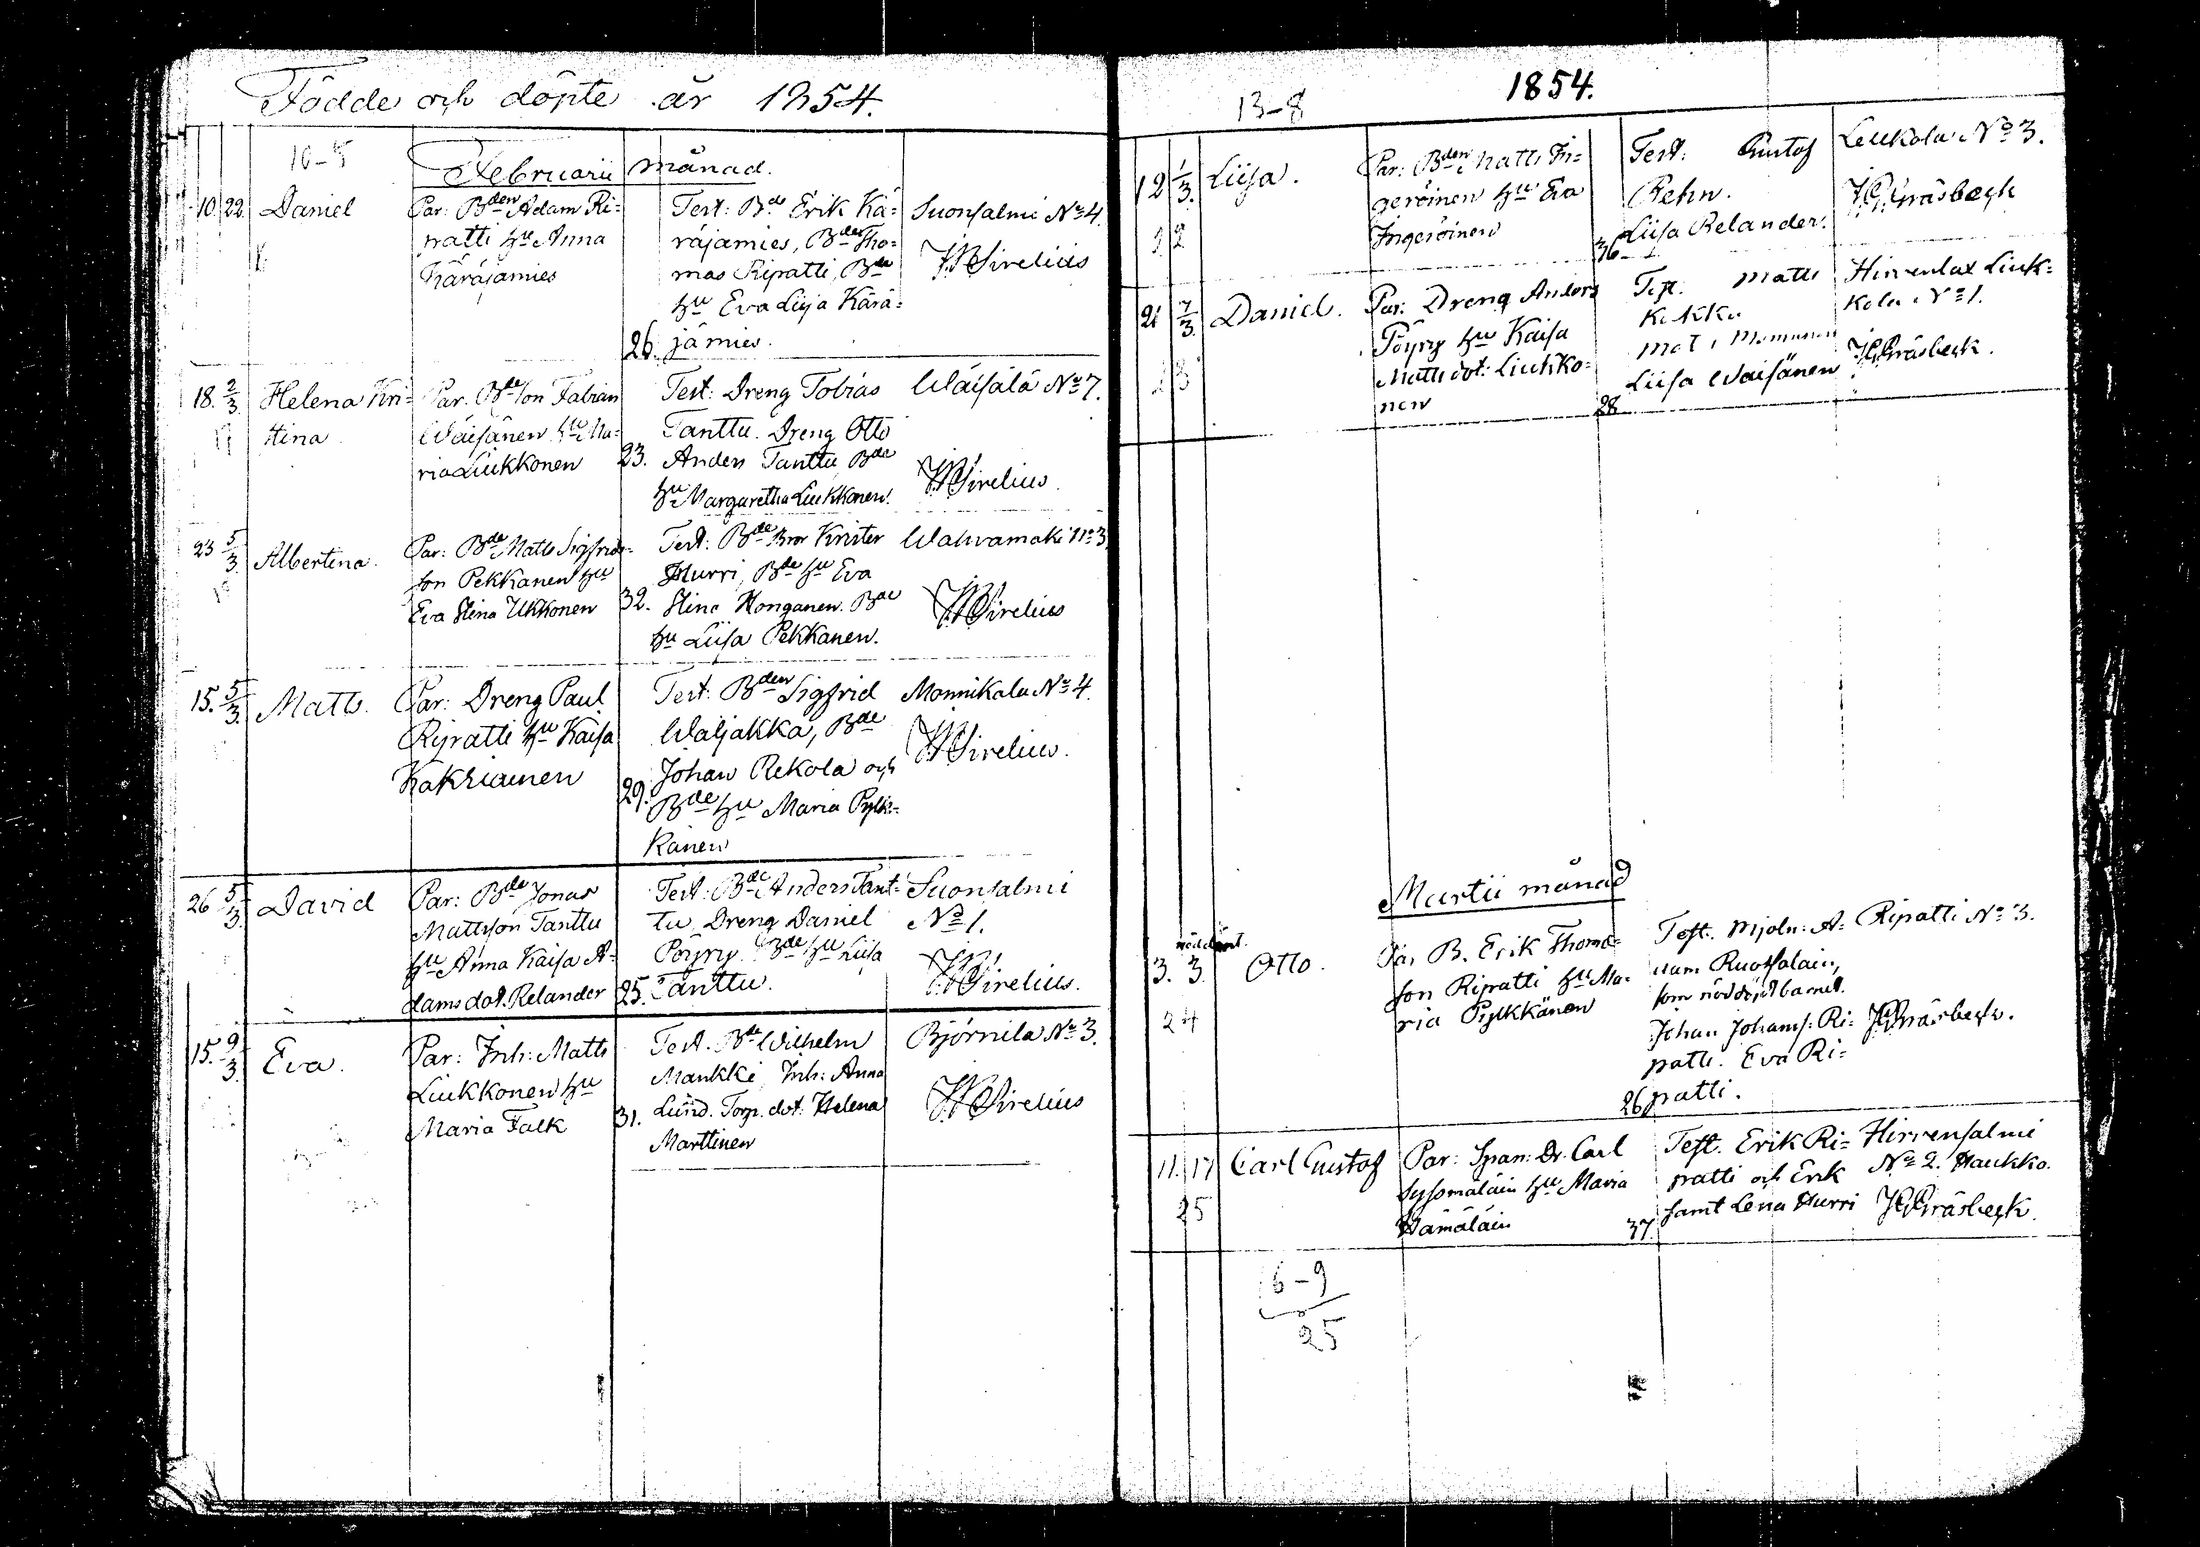 Födde och döpte år 1854.
10-8
Februarii månad.
10. 22. Daniel
Par: Bden Adam Ri=
patti hu Anna
Käräjamies
Test: Bde Erik Kä=
räjamies, Bden Tho=
mas Ripatti, Bde
hu Eva Liisa Kärä=
jämies.
26.
Suonsalmi No 4.
Sirelius
18. 2/3. Helena Kri=
stina
Par. Bde Son Fabian
Wäisänen hu Ma=
ria Liukkonen
Test: Dreng Tobias
Tanttu. Dreng Otto
Anders Tanttu, Bde
hu Margaretha Liukkonen.
23.
Wäisälä No 7.
Sirelius
23 5/3. Albertina.
Par: Bde Matts Sigfrids=
son Pekkanen hu
Eva Stina Ukkonen
Test: Bde Bror Krister
Hurri, Bde hu Eva
Stina Honganen. Bde
hu Liisa Pekkanen.
32.
Wahvamäki No 3.
Sirelius
15. 5/3. Matts.
Par: Dreng Paul
Ripatti hu Kaisa
Kakriainen
Test: Bden Sigfrid
Waljakka, Bde
Johan Rekola och
Bde hu Maria Pylk=
känen
29.
Monnikala No 4.
Sirelius.
26 5/3. David
Par: Bde Jonas
Mattsson Tanttu
hu Anna Kaisa A=
dams dot. Relander
Test: Bde Anders Tant=
tu, Dreng Daniel
Pöyry. Bde hu Liisa
Tanttu.
25.
Suonsalmi
No 1.
Sirelius.
15. 9/3. Eva.
Par: Inh: Matts
Liukkonen hu
Maria Falk
Test. Bde Wilhelm
Mankki, Inh: Anna
Lund. Torp. dot: Helena
Marttinen
31.
Björnila No 3.
Sirelius
1854.
13-8
12 1/3. Liisa.
22
Par: Bden Matts In=
geröinen hu Eva
Ingeröinen
Test: Gustof
Rehn.
Liisa Relander.
36
Leukola No 3.
Gräsbeck
21 7/3. Daniel.
23
Par: Dreng Anders
Pöyry hu Kaisa
Matts dot: Liukko=
nen
Test. Matts
Kukka
Liisa Waisänen
28
Hirvenlax Liuk=
kola No 1.
Gräsbeck.
Martii månad
nöddöpt.
3. 3 Otto.
24
Par B. Erik Thoma=
son Ripatti hu Ma=
ria Pylkkänen
Test. Mjöln: A=
dam Ruotsalain,
som nöddöpt barnet.
Johan Johanss: Ri=
patti. Eva Ri=
patti.
26
Ripatti No 3.
Gräsbeck.
11. 17 Carl Gustof
25
Par: Span: Dr. Carl
Syssmäläin hu Maria
Hämäläin
Test. Erik Ri=
patti och Erik
samt Lena Hurri
37.
Hirvensalmi
No 2. Haukko.
Gräsbeck.
16-9
25